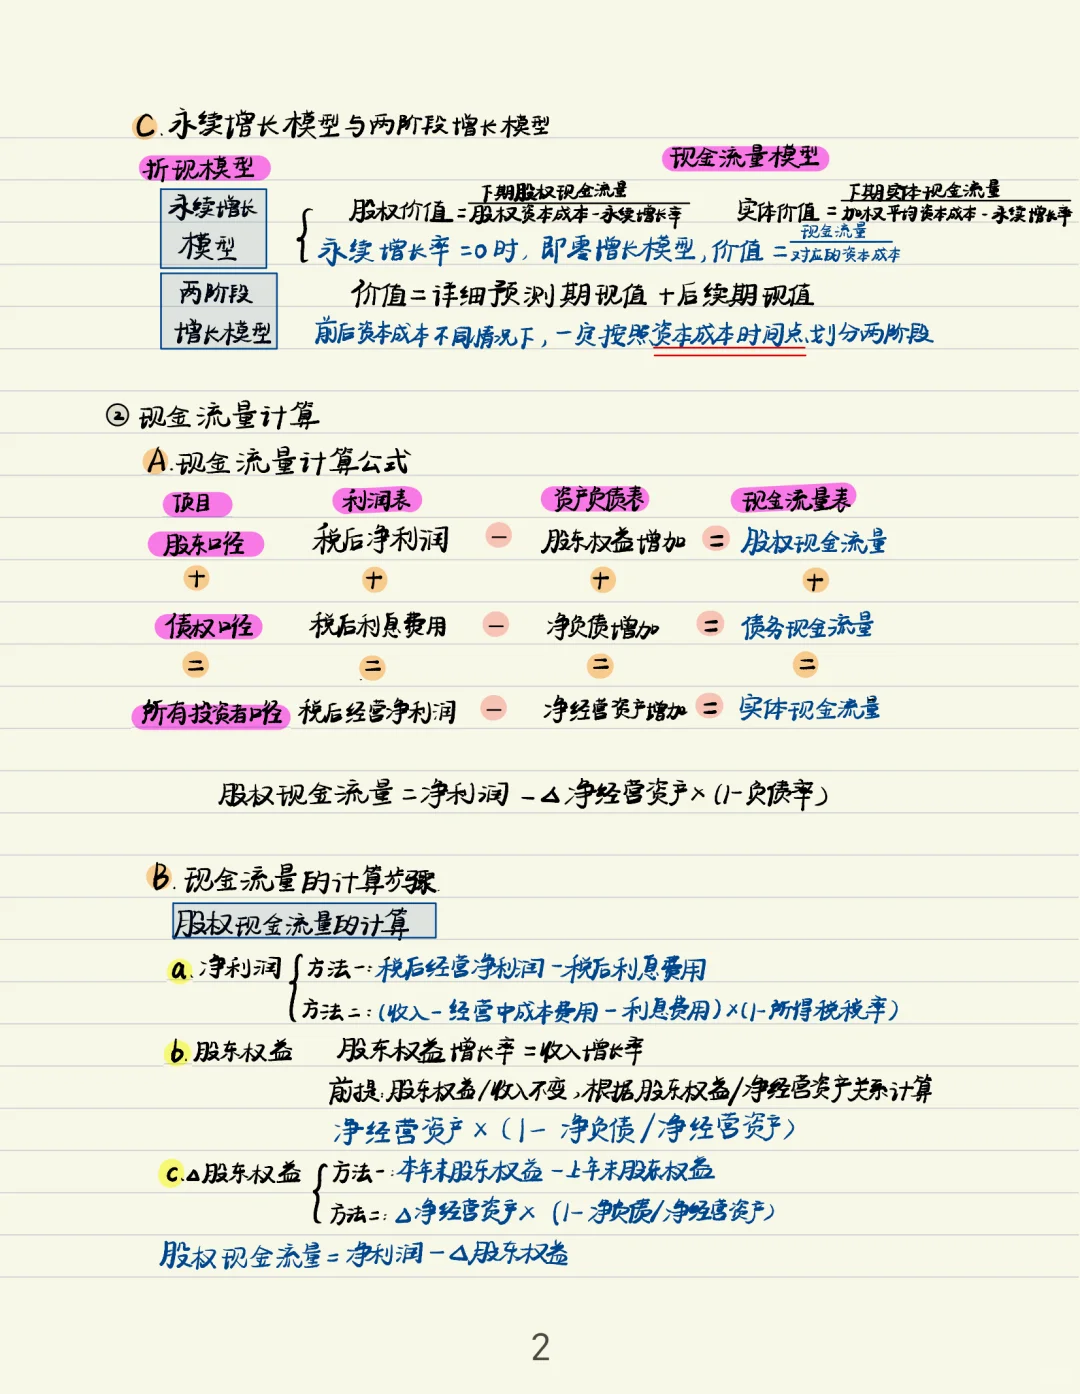 C.永续增长模型与两阶段增长模型
折现模型 现金流量模型
永续增长模型
股权价值=下期股权现金流量/股权资本成本-永续增长率 实体价值=下期实体现金流量/加权平均资本成本-永续增长率
永续增长率=0时,即零增长模型,价值=现金流量/对应的资本成本
两阶段增长模型
价值=详细预测期现值+后续期现值
前后资本成本不同情况下,一定按照资本成本时间点划分两阶段
②现金流量计算
A.现金流量计算公式
项目 利润表 资产负债表 现金流量表
股东口径 税后净利润 - 股东权益增加 = 股权现金流量
+ + + +
债权口径 税后利息费用 - 净负债增加 = 债务现金流量
= = = =
所有投资者口径 税后经营净利润 - 净经营资产增加 = 实体现金流量
股权现金流量=净利润-△净经营资产×(1-负债率)
B.现金流量的计算步骤
股权现金流量的计算
a.净利润 方法一:税后经营净利润-税后利息费用
方法二:(收入-经营中成本费用-利息费用)×(1-所得税税率)
b.股东权益 股东权益增长率=收入增长率
前提:股东权益/收入不变,根据股东权益/净经营资产关系计算
净经营资产×(1-净负债/净经营资产)
c.△股东权益 方法一:本年末股东权益-上年末股东权益
方法二:△净经营资产×(1-净负债/净经营资产)
股权现金流量=净利润-△股东权益
2